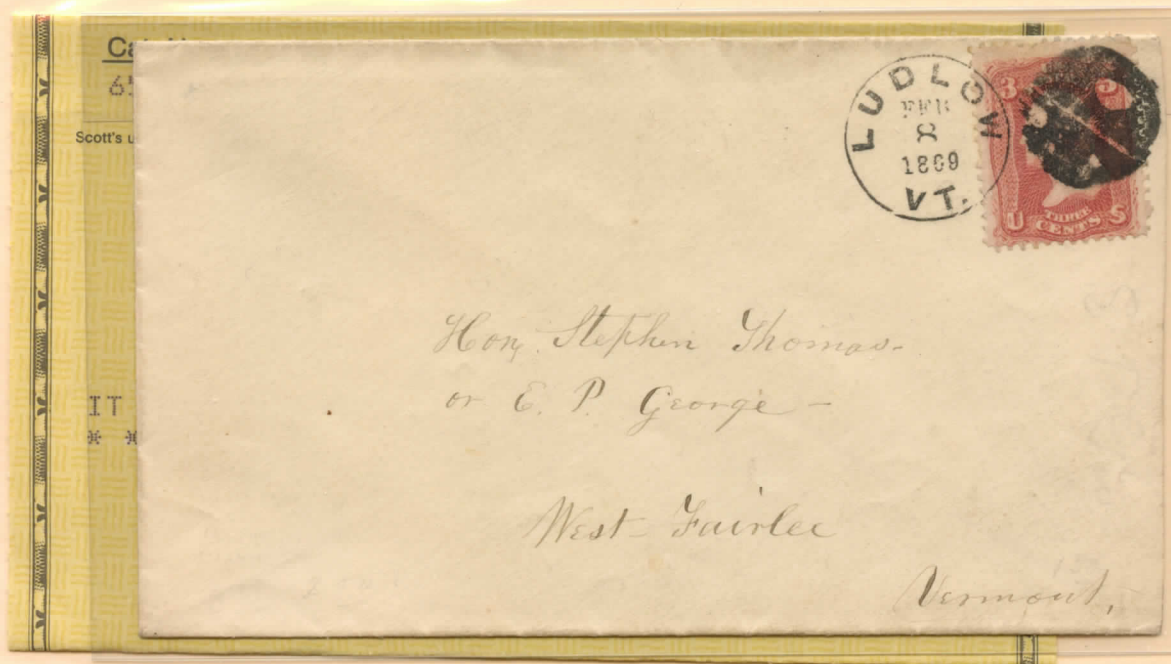 65
Scott's u
LUDLOW
FEB
8
1869
VT.
3 3
U THREE CENTS S
Hon. Stephen Thomas-
or E. P. George -
IT
* *
West - Fairlee
Vermont,